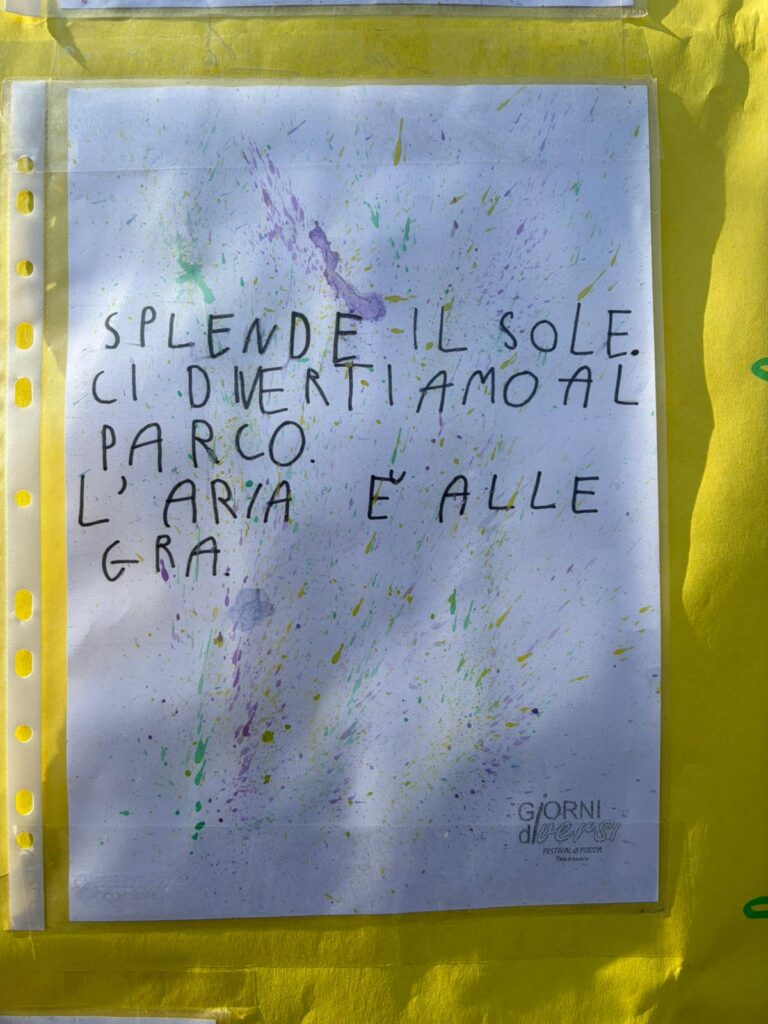 SPLENDE IL SOLE.
CI DIVERTIAMO AL
PARCO.
L'ARIA È ALLE
GRA.
GIORNI
diversi
FESTIVAL di POESIA